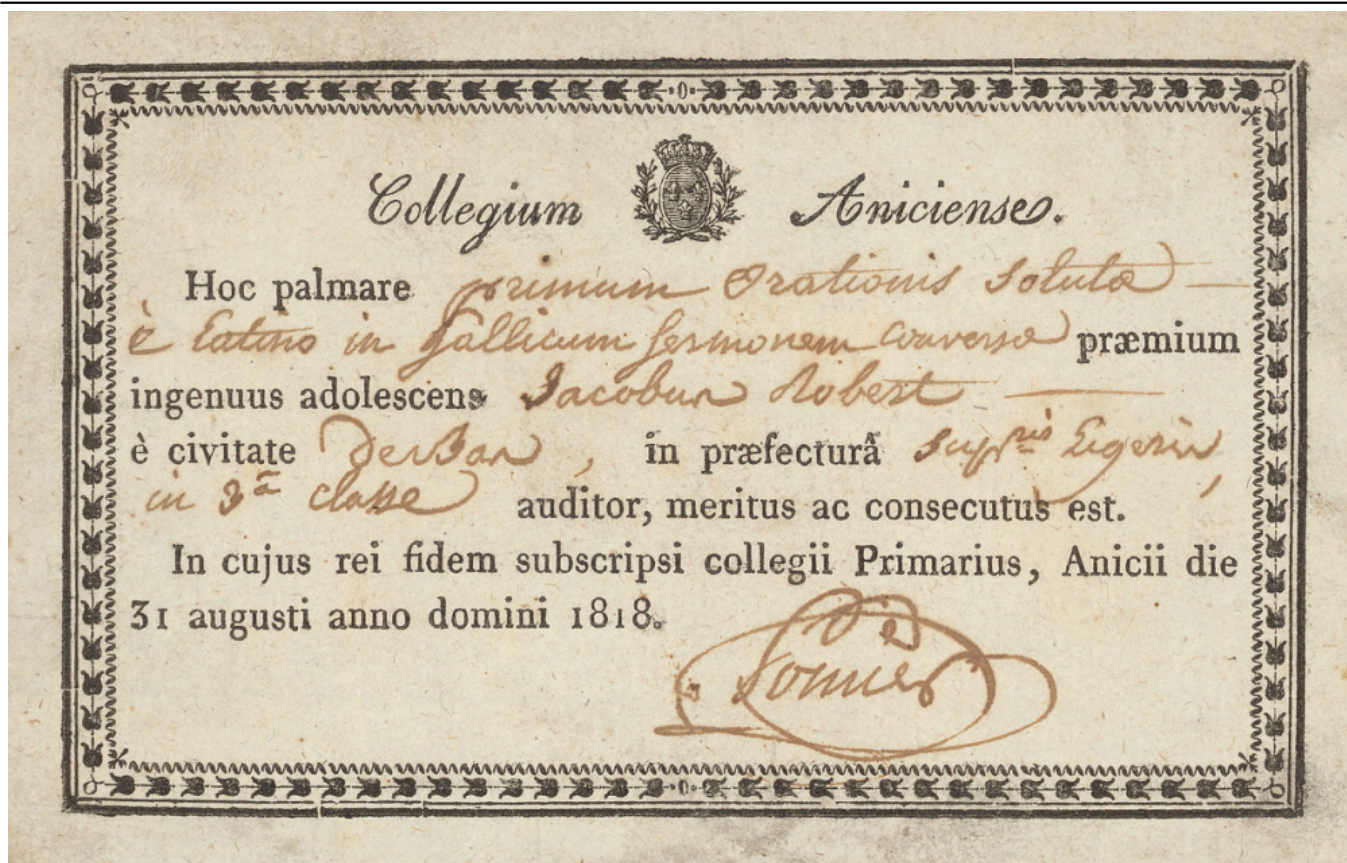 Collegium Aniciense.
Hoc palmare primum Orationis Solutæ
è Latino in gallicum sermonem conversæ præmium
ingenuus adolescens Jacobus Robert
è civitate , in præfecturâ Supris Ligeris,
in 3ª classe auditor, meritus ac consecutus est.
In cujus rei fidem subscripsi collegii Primarius, Anicii die
31 augusti anno domini 1818.